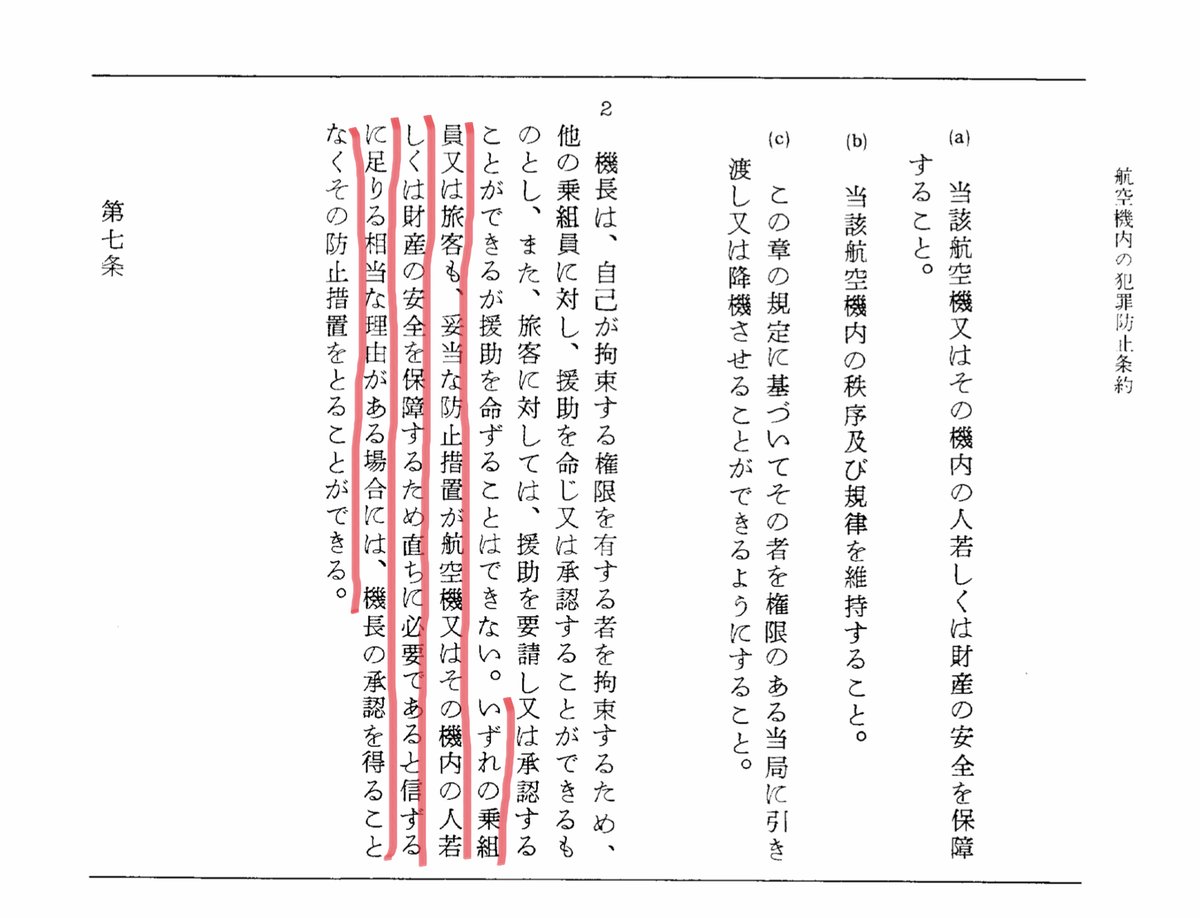 航空機内の犯罪防止条約
(a) 当該航空機又はその機内の人若しくは財産の安全を保障
すること。
(b) 当該航空機内の秩序及び規律を維持すること。
(c) この章の規定に基づいてその者を権限のある当局に引き
渡し又は降機させることができるようにすること。
2 機長は、自己が拘束する権限を有する者を拘束するため、
他の乗組員に対し、援助を命じ又は承認することができるも
のとし、また、旅客に対しては、援助を要請し又は承認する
ことができるが援助を命ずることはできない。いずれの乗組
員又は旅客も、妥当な防止措置が航空機又はその機内の人若
しくは財産の安全を保障するため直ちに必要であると信ずる
に足りる相当な理由がある場合には、機長の承認を得ること
なくその防止措置をとることができる。
第七条